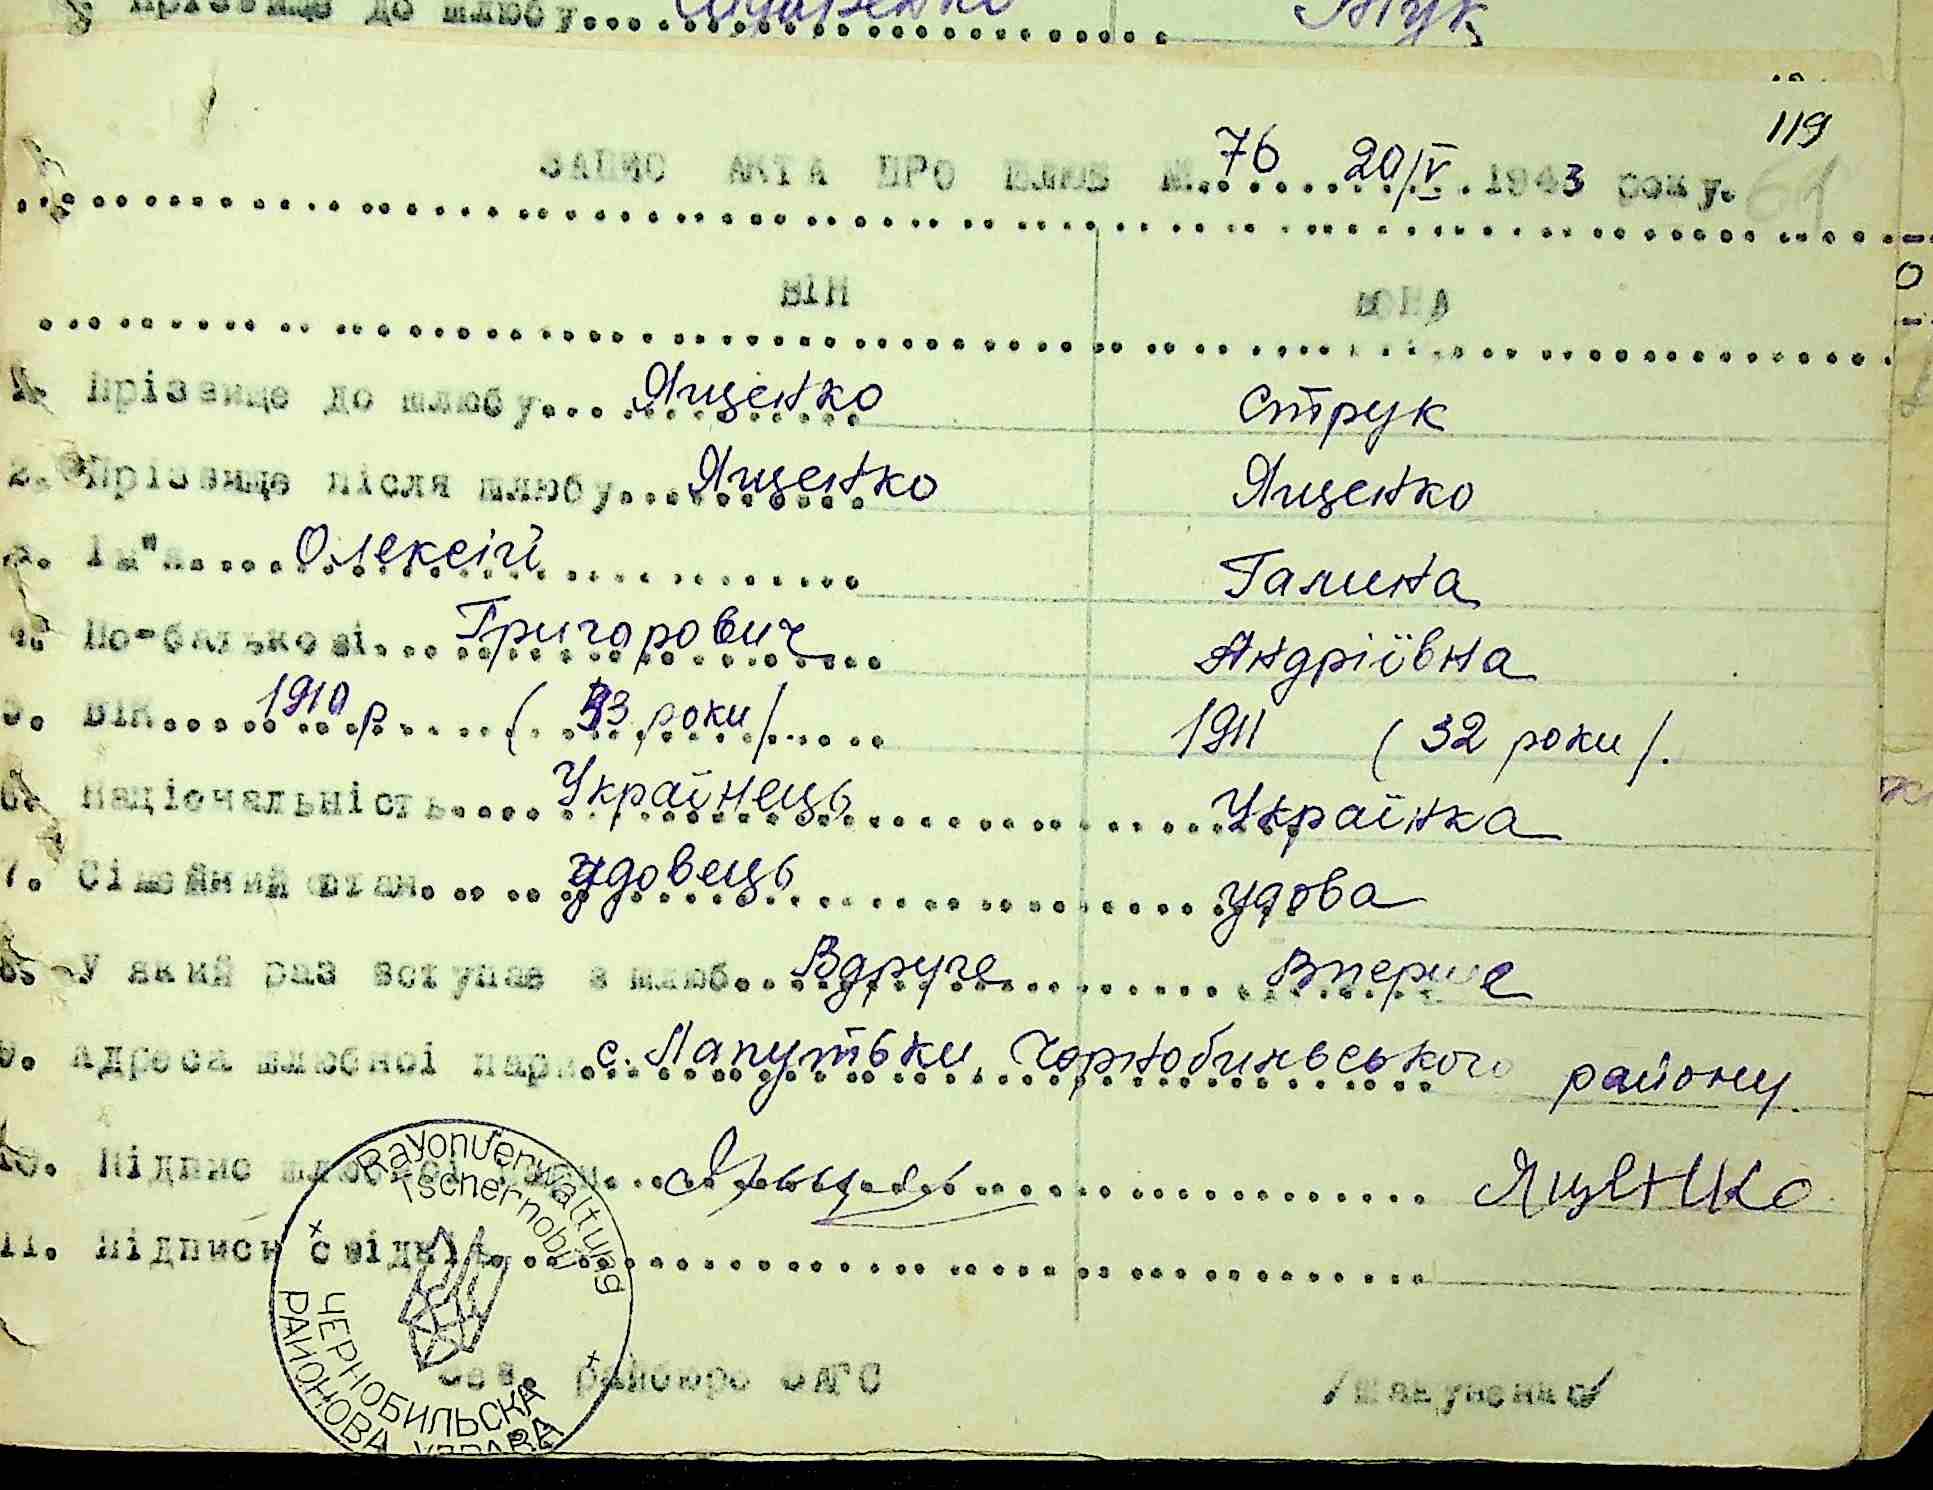 Прізвище до шлюбу
119
ЗАПИС АКТА ПРО ШЛЮБ №. 76 20/V 1943 року.
ВІН ВОНА
1. Прізвище до шлюбу... Яценко Струк
2. Прізвище після шлюбу... Яценко Яценко
3. Ім"я.... Олексій Галина
4. По-батькові... Григорович Андріївна
5. Вік.... 1910 р. ( 33 роки /. 1911 ( 32 роки /.
6. Національність.... Українець Українка
7. Сімейний стан.... удовець удова
8. У який раз вступає в шлюб.. Вдруге Вперше
9. Адреса шлюбної пари. с. Лапутьки, Чорнобильського району
10. Підпис шлюбної пари... Яценко
11. Підписи свідків...
Rayonverwaltung
Tschernobyl
ЧЕРНОБИЛЬСКА
РАЙОНОВА УПРАВА
Зав. райбюро ЗАГС /Шакуненко/